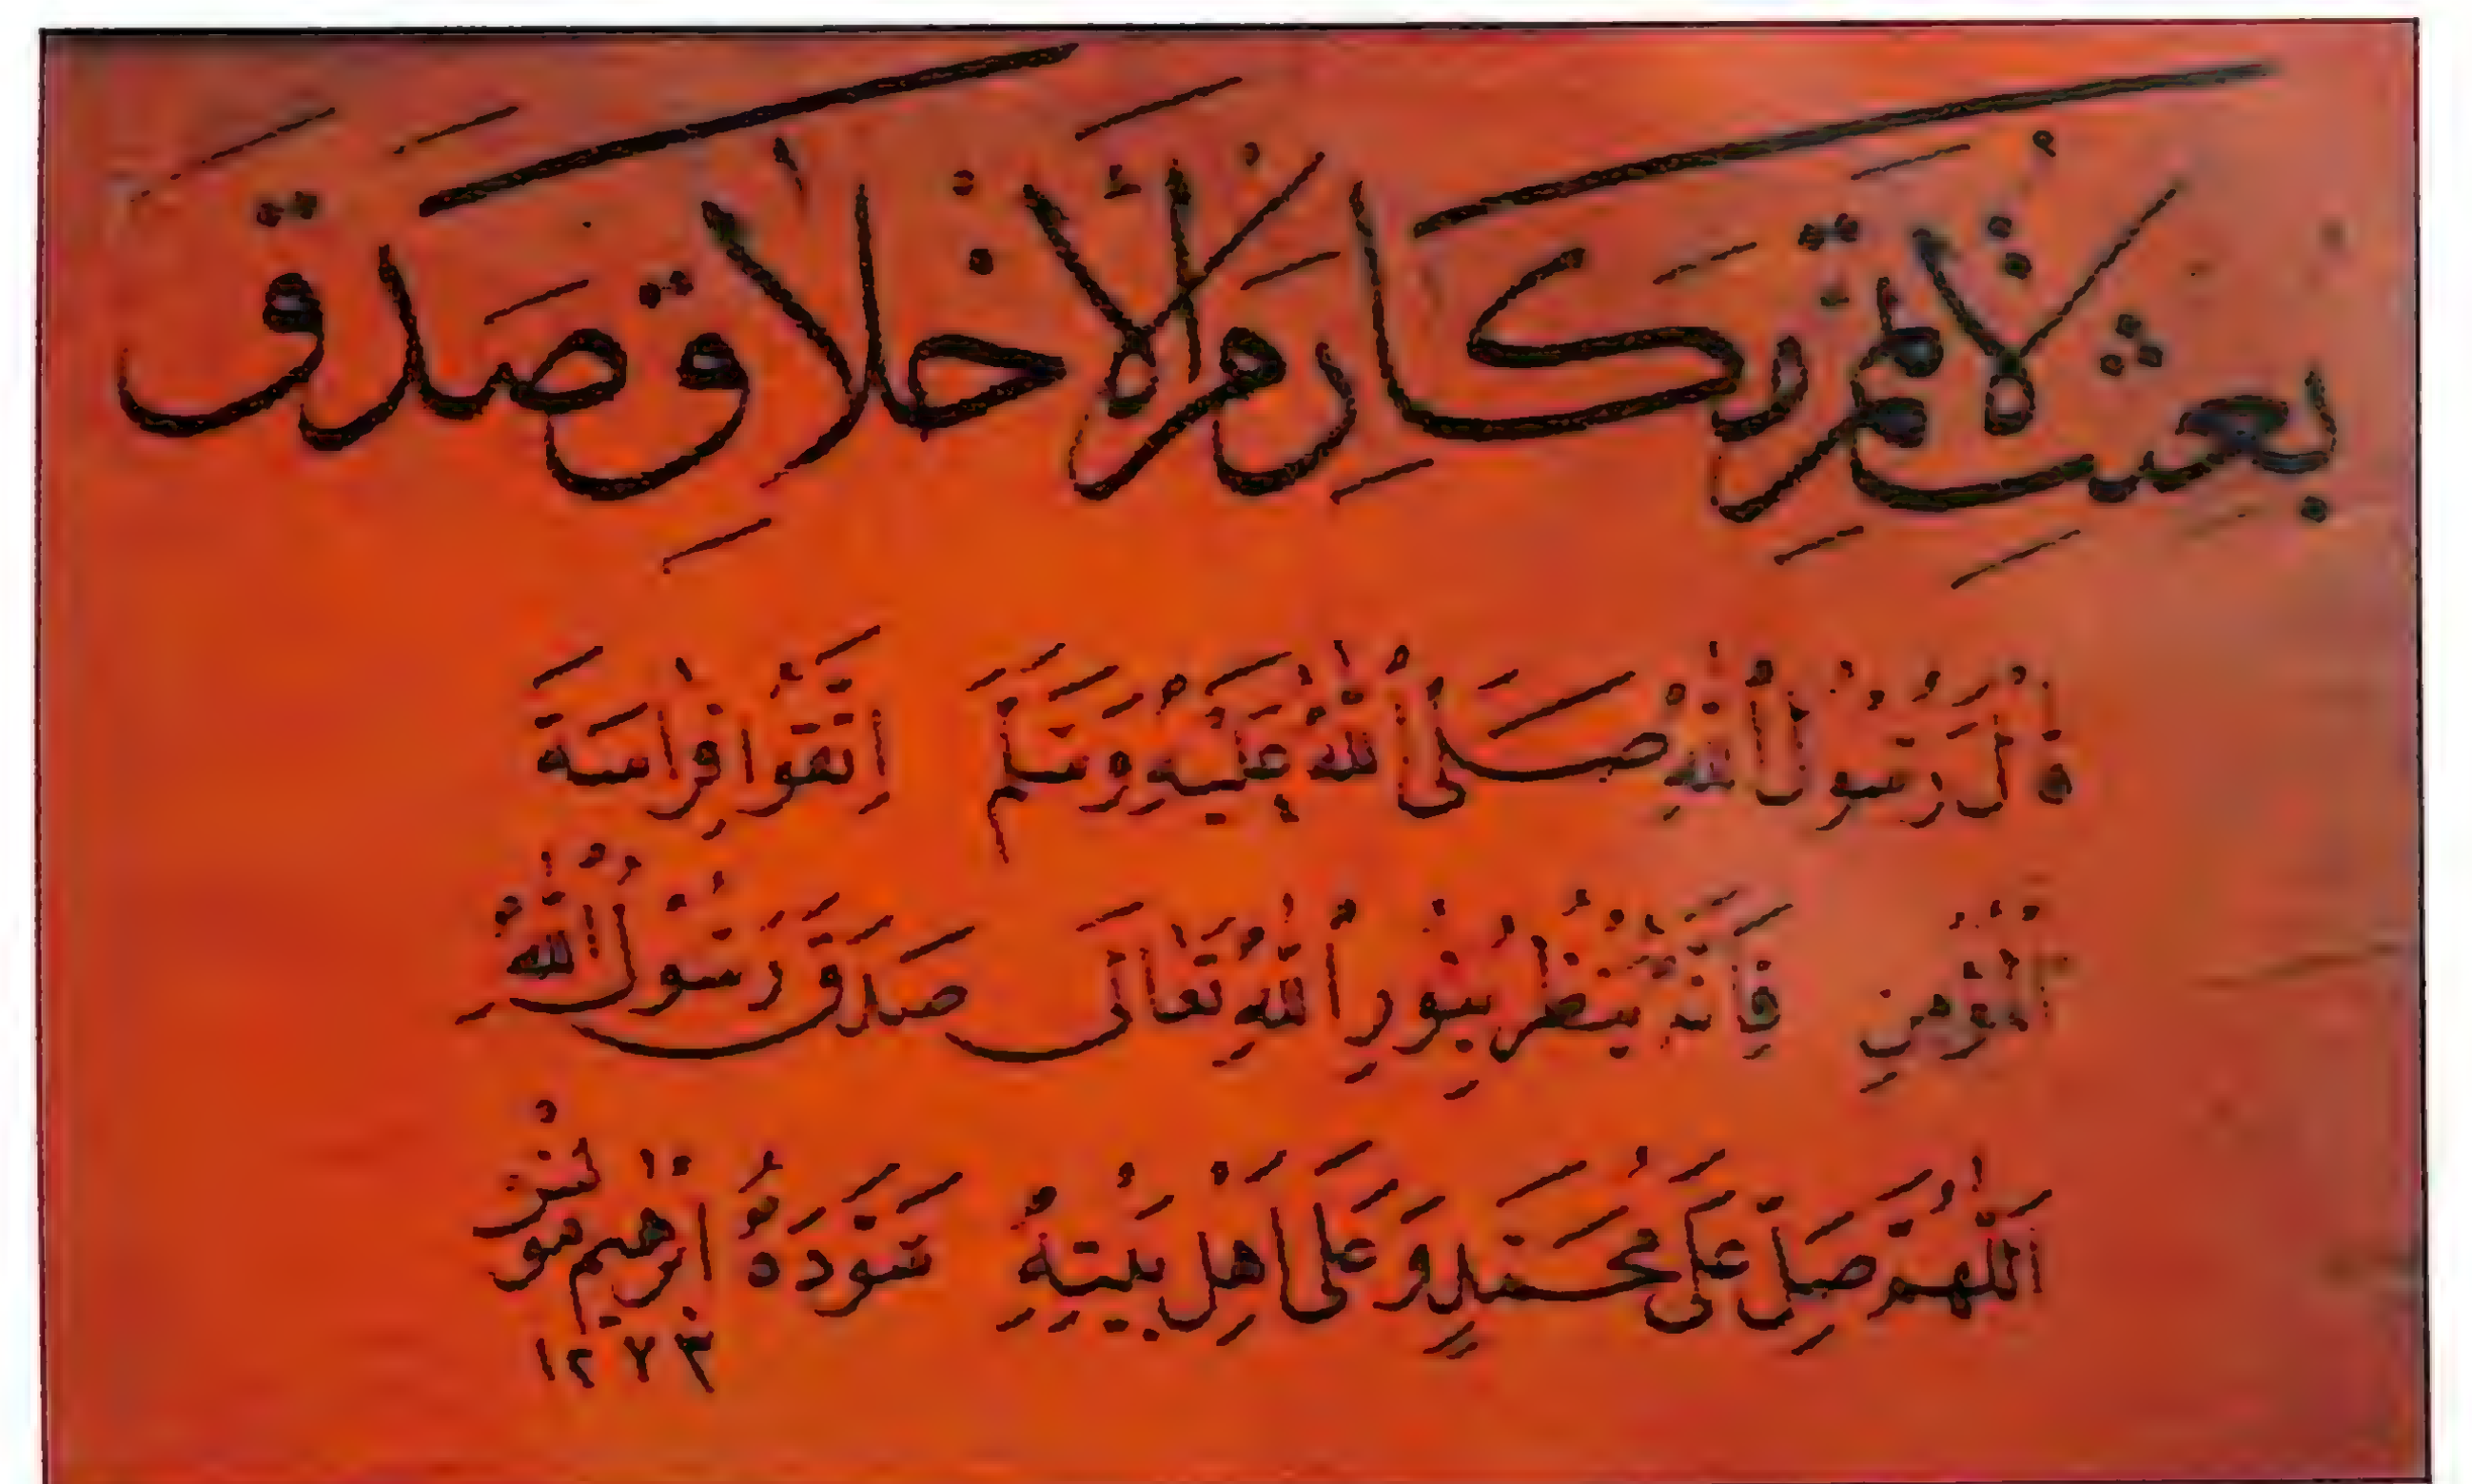 بعثت لأتمم مكارم الأخلاق صدق
قَالَ رَسُولُ اللهِ صَلَّى اللهُ عَلَيْهِ وَسَلَّمَ اِتَّقُوا فِرَاسَةَ
الْمُؤْمِنِ فَاِنَّهُ يَنْظُرُ بِنُورِ اللهِ تَعَالَى صَدَقَ رَسُولُ اللهِ
اَللّهُمَّ صَلِّ عَلَى مُحَمَّدٍ وَعَلَى اَهْلِ بَيْتِهِ سَوَّدَهُ اِبْرهِيم
١٢٧٣